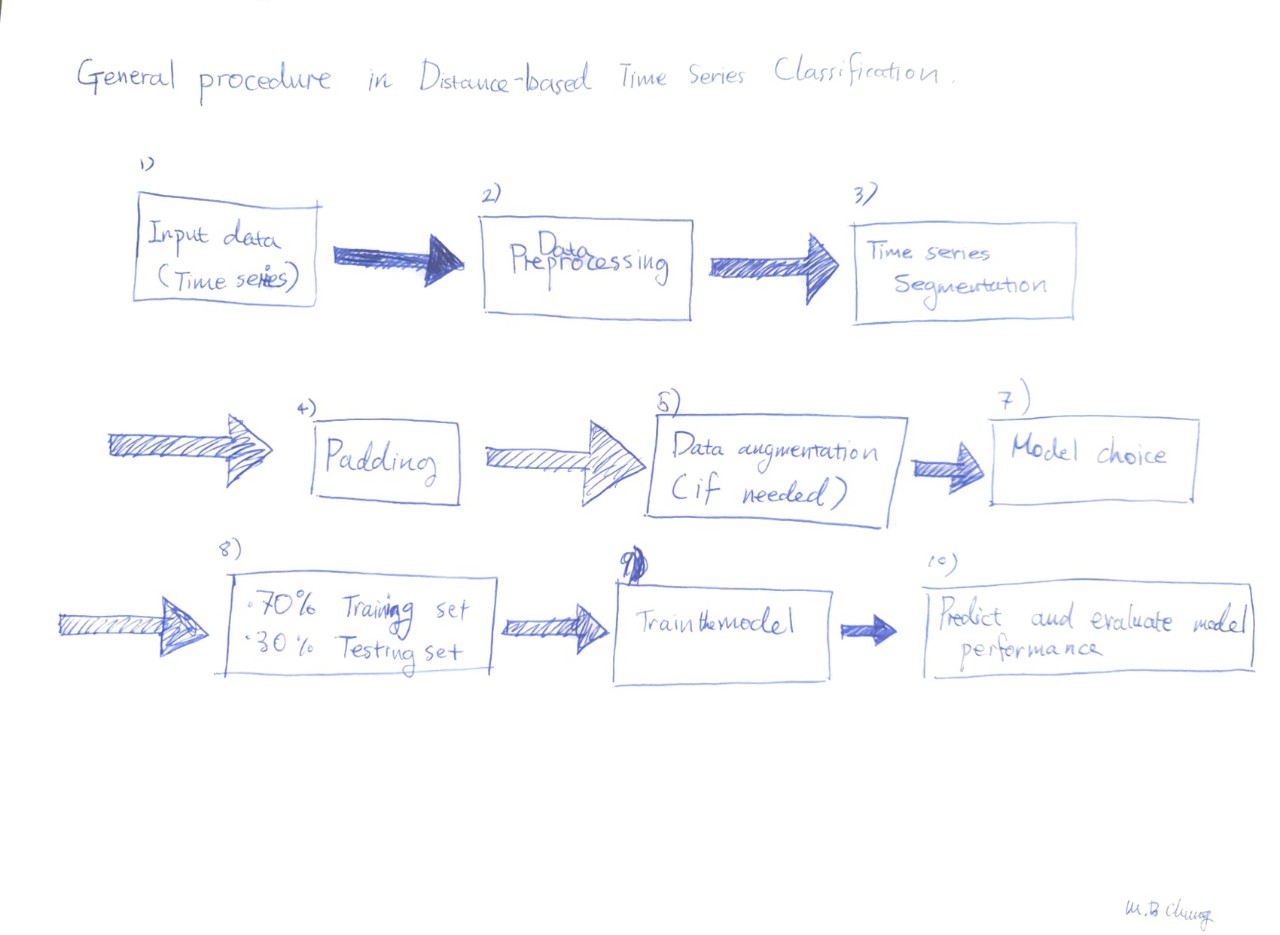 General procedure in Distance-based Time Series Classification.
1)
Input data
(Time series)
2)
Data
Preprocessing
3)
Time series
Segmentation
4)
Padding
5)
Data augmentation
(if needed)
7)
Model choice
8)
·70% Training set
·30% Testing set
9)
Train the model
10)
Predict and evaluate model
performance
M.B Chung